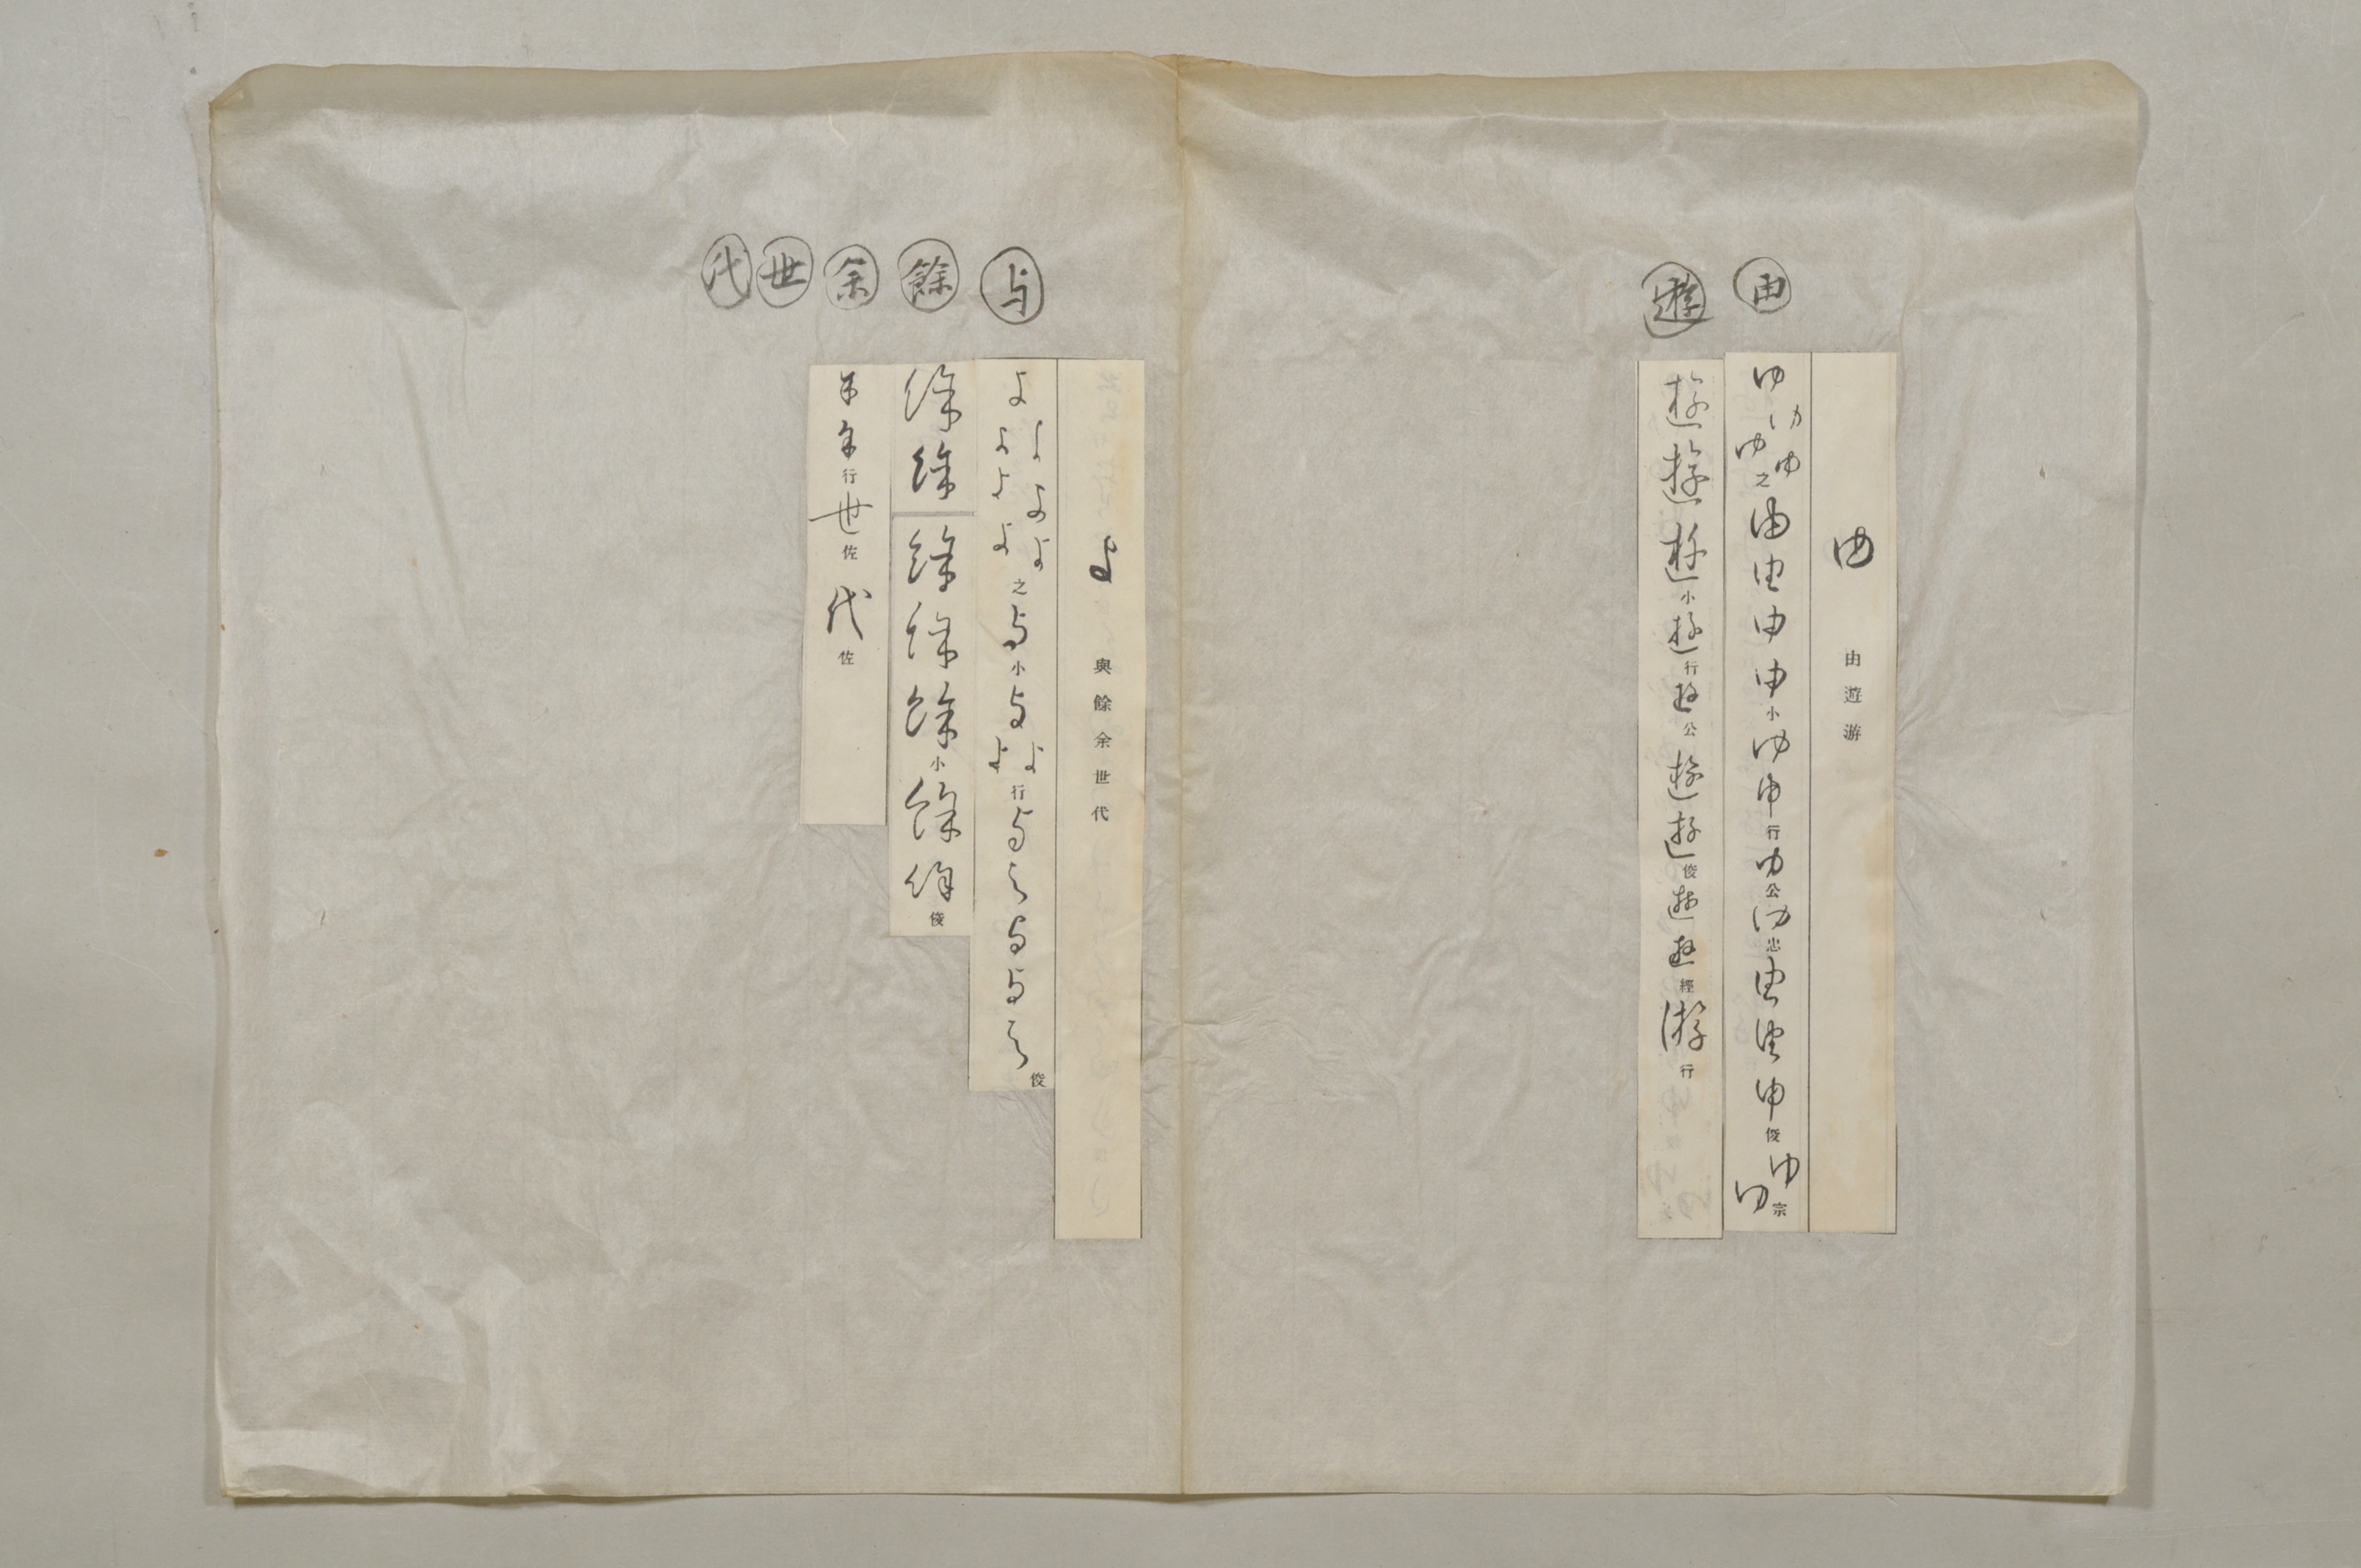 由
遊
ゆ 由遊游
ゆゆゆゆ之由由由由小由由行由公由忠由由由俊ゆゆ宗
遊遊遊小遊行遊公遊遊俊遊遊經游行
与
餘
余
世
代
よ 與餘余世代
よよよよよよよ之与小与よよ行与与与与与俊
餘餘餘餘餘小餘餘俊
余余行世佐代佐